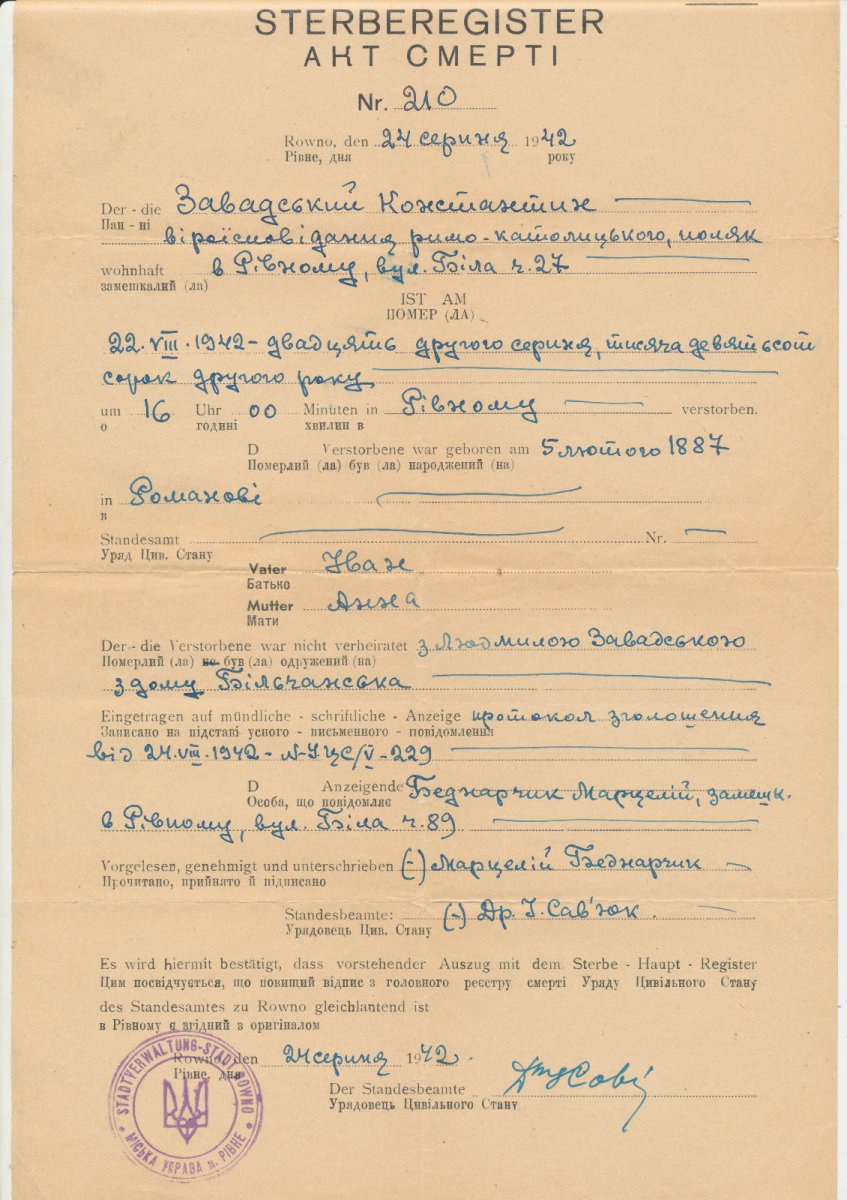 STERBEREGISTER
АКТ СМЕРТІ
Nr. 210
Rowno, den 24 серпня 1942
Рівне, дня року
Der - die Завадський Константин
Пан - ні
віроісповідання римо-католицького, поляк
wohnhaft в Рівному, вул. Біла ч. 27
замешкалий (ла)
IST AM
ПОМЕР (ЛА)
22.VIII.1942 - двадцять другого серпня, тисяча девятьсот
сорок другого року
um 16 Uhr 00 Minuten in Рівному verstorben.
о годині хвилин в
D Verstorbene war geboren am 5 лютого 1887
Померлий (ла) був (ла) народжений (на)
in Романові
в
Standesamt Nr.
Уряд Цив. Стану
Vater Іван
Батько
Mutter Анна
Мати
Der - die Verstorbene war nicht verheiratet з Людмилою Завадською
Померлий (ла) не був (ла) одружений (на)
з дому Більчанська
Eingetragen auf mündliche - schriftliche - Anzeige протокол зголошення
Записано на підставі усного - письменного - повідомлення
від 24.VIII.1942 - N-УЦС/V-229
D Anzeigende Беднарчик Марцелій, замешк.
Особа, що повідомляє
в Рівному, вул. Біла ч. 89
Vorgelesen, genehmigt und unterschrieben (-) Марцелій Беднарчик
Прочитано, прийнято й підписано
Standesbeamte: (-) Др. І. Сав'юк.
Урядовець Цив. Стану
Es wird hiermit bestätigt, dass vorstehender Auszug mit dem Sterbe - Haupt - Register
Цим посвідчується, що повищий відпис з головного реєстру смерті Уряду Цивільного Стану
des Standesamtes zu Rowno gleichlantend ist
в Рівному є згідний з оригіналом
Rowno, den 24 серпня 1942.
Рівне, дня
Der Standesbeamte
Урядовець Цивільного Стану
STADTVERWALTUNG-STADT ROWNO
МІСЬКА УПРАВА м. РІВНЕ